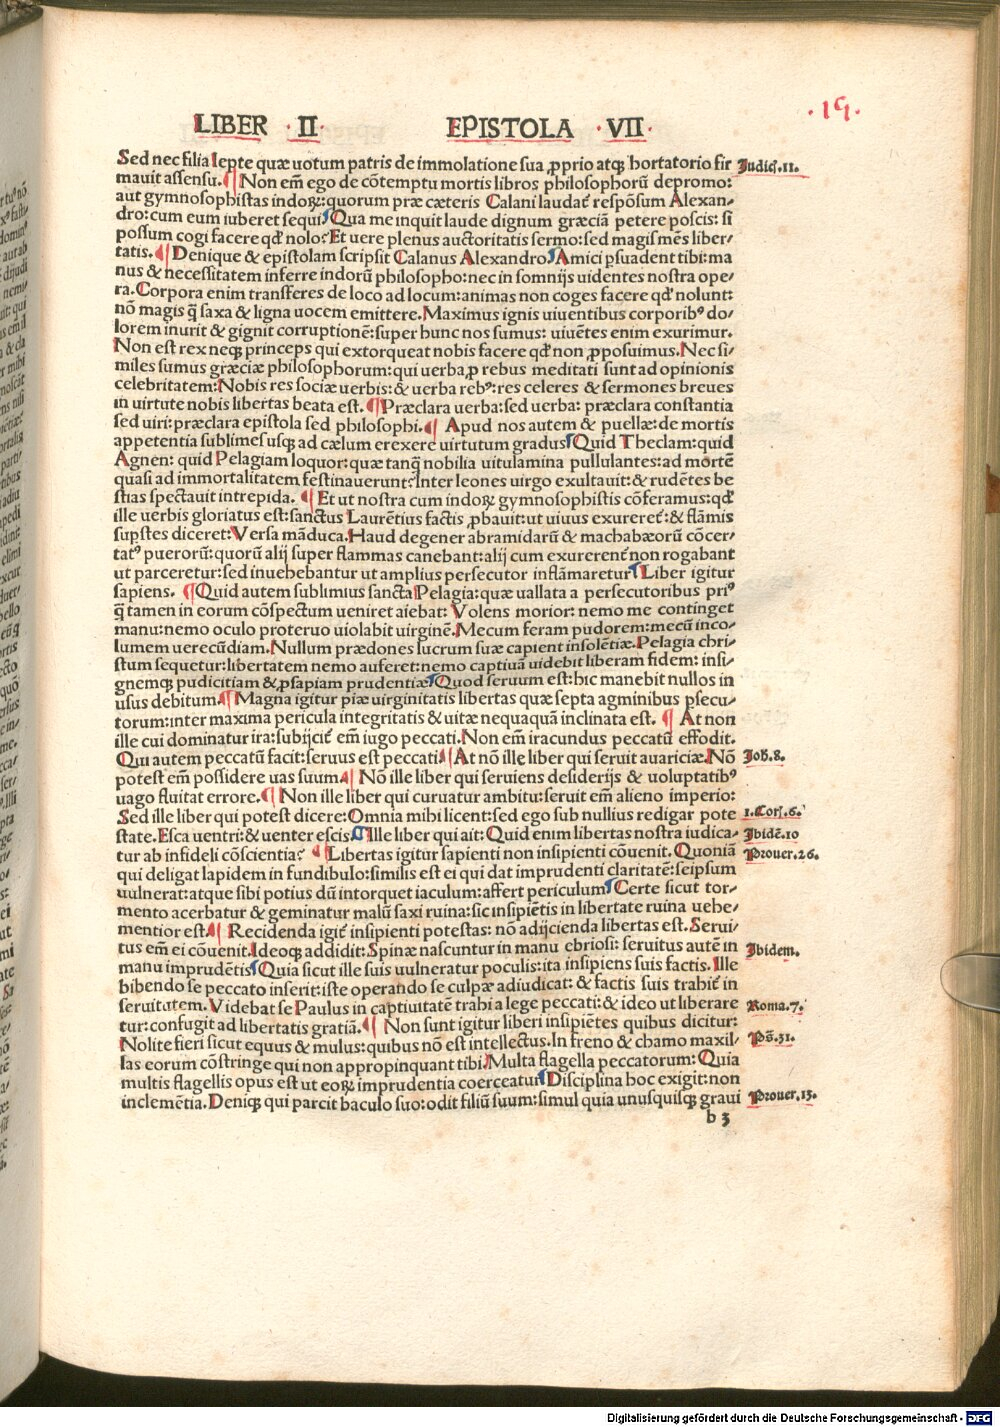 .19.
LIBER · II · EPISTOLA · VII ·
Sed nec filia Iepte quæ uotum patris de immolatione sua ꝓprio atqꝫ hortatorio fir Judicꝫ.11.
mauit assensu. Non em̄ ego de cōtemptu mortis libros philosophorū depromo:
aut gymnosophistas indoꝝ: quorum præ cæteris Calani laudat᷑ respōsum Alexan⸗
dro: cum eum iuberet sequi. Qua me inquit laude dignum græciā petere poscis: si
possum cogi facere qđ nolo? Et uere plenus auctoritatis sermo: sed magis mēs liber⸗
tatis. Denique & epistolam scripsit Calanus Alexandro. Amici ꝑsuadent tibi: ma
nus & necessitatem inferre indorū philosopho: nec in somnijs uidentes nostra ope⸗
ra. Corpora enim transferes de loco ad locum: animas non coges facere qđ nolunt:
nō magis q̄ saxa & ligna uocem emittere. Maximus ignis uiuentibus corporibꝰ do⸗
lorem inurit & gignit corruptionē: super hunc nos sumus: uiuētes enim exurimur.
Non est rex neqꝫ princeps qui extorqueat nobis facere qđ non ꝓposuimus. Nec si⸗
miles sumus græciæ philosophorum: qui uerba ꝓ rebus meditati sunt ad opinionis
celebritatem: Nobis res sociæ uerbis: & uerba rebꝰ: res celeres & sermones breues
in uirtute nobis libertas beata est. Præclara uerba: sed uerba: præclara constantia
sed uiri: præclara epistola sed philosophi. Apud nos autem & puellæ: de mortis
appetentia sublimes usqꝫ ad cælum erexere uirtutum gradus Quid Theclam: quid
Agnen: quid Pelagiam loquor: quæ tanq̄ nobilia uitulamina pullulantes: ad mortē
quasi ad immortalitatem festinauerunt? Inter leones uirgo exultauit: & rudētes be
stias spectauit intrepida. Et ut nostra cum indoꝝ gymnosophistis cōferamus: qđ
ille uerbis gloriatus est: sanctus Laurētius factis ꝓbauit: ut uiuus exureret᷑: & flāmis
supstes diceret: Versa māduca. Haud degener abramidarū & machabæorū cōcer⸗
tatꝰ puerorū: quorū alij super flammas canebant: alij cum exurerent᷑ non rogabant
ut parceretur: sed inuehebantur ut amplius persecutor inflāmaretur Liber igitur
sapiens. Quid autem sublimius sancta Pelagia: quæ uallata a persecutoribus priꝰ
q̄ tamen in eorum cōspectum ueniret aiebat: Volens morior: nemo me continget
manu: nemo oculo proteruo uiolabit uirginē. Mecum feram pudorem: mecū inco⸗
lumem uerecūdiam. Nullum prædones lucrum suæ capient insolētiæ. Pelagia chri⸗
stum sequetur: libertatem nemo auferet: nemo captiuā uidebit liberam fidem: insi⸗
gnemqꝫ pudicitiam & ꝓsapiam prudentiæ Quod seruum est: hic manebit nullos in
usus debitum. Magna igitur piæ uirginitatis libertas quæ septa agminibus ꝑsecu⸗
torum: inter maxima pericula integritatis & uitæ nequaquā inclinata est. At non
ille cui dominatur ira: subijcit᷑ em̄ iugo peccati. Non em̄ iracundus peccatū effodit.
Qui autem peccatū facit: seruus est peccati. At nō ille liber qui seruit auariciæ. Nō Joh̄.8.
potest em̄ possidere uas suum. Nō ille liber qui seruiens desiderijs & voluptatibꝰ
uago fluitat errore. Non ille liber qui curuatur ambitu: seruit em̄ alieno imperio:
Sed ille liber qui potest dicere: Omnia mihi licent: sed ego sub nullius redigar pote 1.Corꝫ.6.
state. Esca uentri: & uenter escis. Ille liber qui ait: Quid enim libertas nostra iudica⸗ Jbidē.10
tur ab infideli cōscientia? Libertas igitur sapienti non insipienti cōuenit. Quoniā Prouer.26.
qui deligat lapidem in fundibulo: similis est ei qui dat imprudenti claritatē: seipsum
uulnerat: atque sibi potius dū intorquet iaculum: affert periculum Certe sicut tor⸗
mento acerbatur & geminatur malū saxi ruina: sic insipiētis in libertate ruina uehe⸗
mentior est. Recidenda igit᷑ insipienti potestas: nō adijcienda libertas est. Serui⸗
tus em̄ ei cōuenit. Ideoqꝫ addidit: Spinæ nascuntur in manu ebriosi: seruitus autē in Jbidem.
manu imprudētis Quia sicut ille suis uulneratur poculis: ita insipiens suis factis. Ille
bibendo se peccato inserit: iste operando se culpæ adiudicat: & factis suis trahit᷑ in
seruitutem. Videbat se Paulus in captiuitatē trahi a lege peccati: & ideo ut liberare Roma.7.
tur: confugit ad libertatis gratiā. Non sunt igitur liberi insipiētes quibus dicitur:
Nolite fieri sicut equus & mulus: quibus nō est intellectus. In freno & chamo maxil⸗ Ps̄.31.
las eorum cōstringe qui non appropinquant tibi. Multa flagella peccatorum: Quia
multis flagellis opus est ut eoꝝ imprudentia coerceatur Disciplina hoc exigit: non
inclemētia. Deniqꝫ qui parcit baculo suo: odit filiū suum: simul quia unusquisqꝫ graui Prouer.13.
b 3
Digitalisierung gefördert durch die Deutsche Forschungsgemeinschaft - DFG